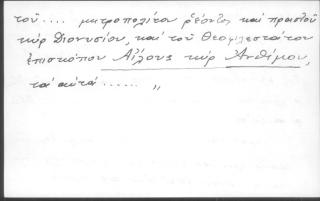 τοῦ.... μητροπολίτου ῥέοντος καὶ προέδρου
κὺρ Διονυσίου, καὶ τοῦ Θεοφιλεστάτου
ἐπισκόπου Αἴλους κὺρ Ἀνθίμου,
τὰ αὐτὰ...... ,,